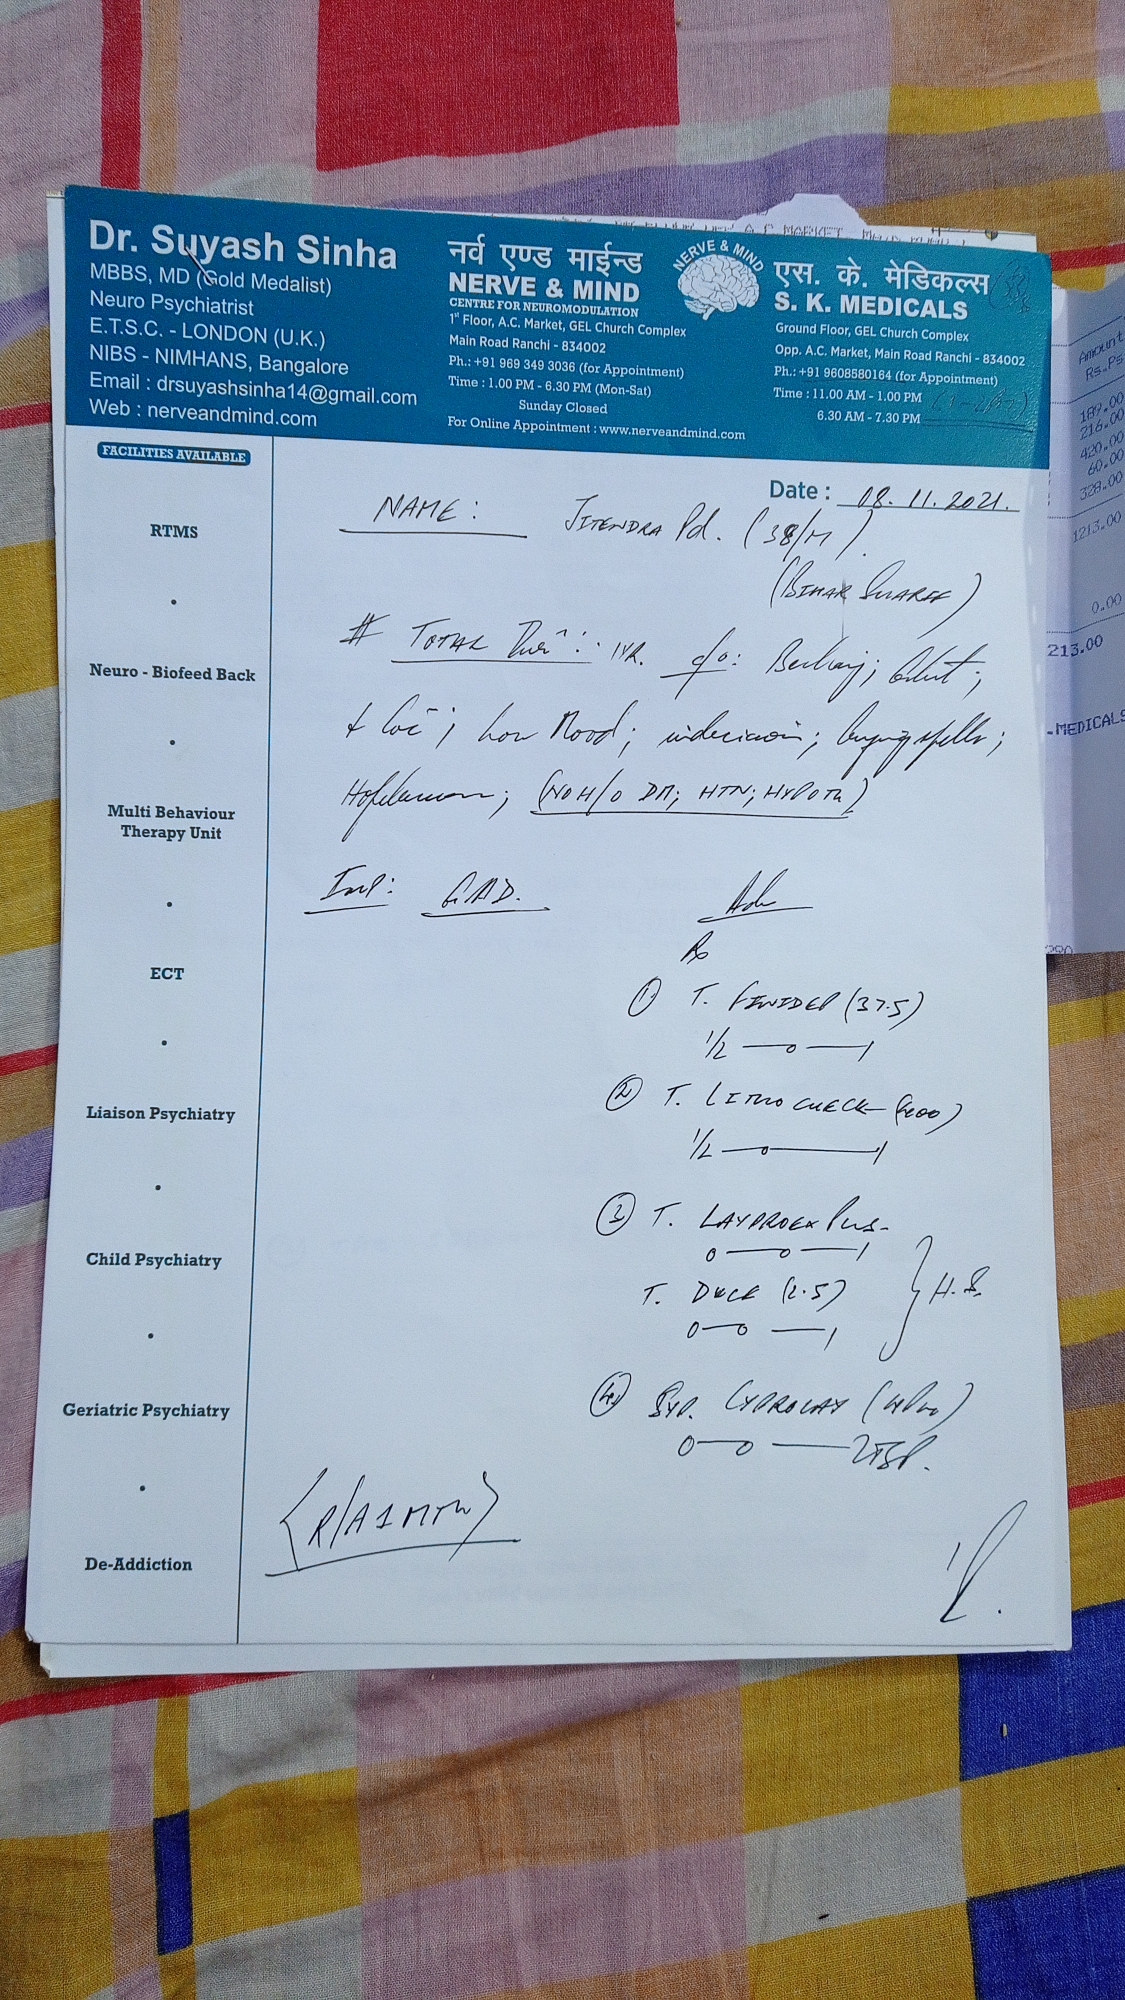 Dr. Suyash Sinha
MBBS, MD (Gold Medalist)
Neuro Psychiatrist
E.T.S.C. - LONDON (U.K.)
NIBS - NIMHANS, Bangalore
Email : drsuyashsinha14@gmail.com
Web : nerveandmind.com
नर्व एण्ड माईन्ड
NERVE & MIND
CENTRE FOR NEUROMODULATION
1st Floor, A.C. Market, GEL Church Complex
Main Road Ranchi - 834002
Ph.: +91 969 349 3036 (for Appointment)
Time : 1.00 PM - 6.30 PM (Mon-Sat)
Sunday Closed
For Online Appointment : www.nerveandmind.com
NERVE & MIND
एस. के. मेडिकल्स
S. K. MEDICALS
Ground Floor, GEL Church Complex
Opp. A.C. Market, Main Road Ranchi - 834002
Ph.: +91 9608580164 (for Appointment)
Time : 11.00 AM - 1.00 PM
6.30 AM - 7.30 PM
FACILITIES AVAILABLE
RTMS
Neuro - Biofeed Back
Multi Behaviour
Therapy Unit
ECT
Liaison Psychiatry
Child Psychiatry
Geriatric Psychiatry
De-Addiction
Date : 08.11.2021.
NAME : JITENDRA Pd. (38/M).
(BIHAR SHARIF)
# TOTAL : 1YR. c/o:
low Mood; indecision; crying spells;
(NO H/O DM; HTN; HYPOTH)
Imp: GAD.
Adv
Rx
① T. (37.5)
1/2 — 0 — 1
② T. LITHOCHECK (400)
1/2 — 0 — 1
③ T. Plus
0 — 0 — 1
T. (2.5)
0 — 0 — 1
} H.S.
④ Syp.
0 — 0 — 2TSP.
<R/A 1 MTH>
Amount
Rs.Ps
189.00
216.00
420.00
60.00
328.00
1213.00
0.00
213.00
-MEDICALS